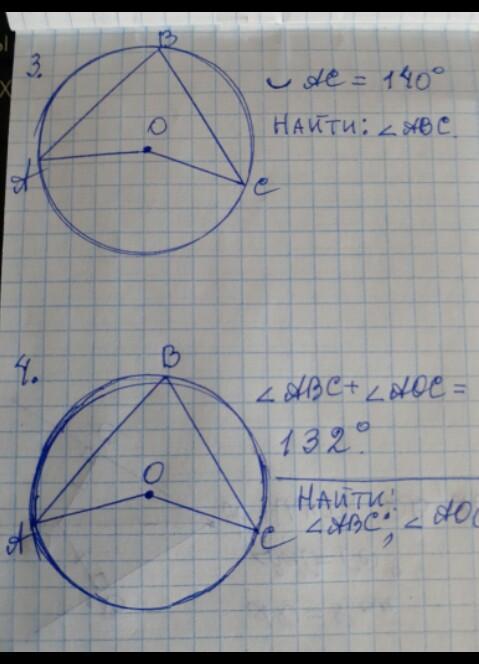 3.
B
O
A
C
◡ AC = 140°
НАЙТИ: ∠ABC.
4.
B
O
A
C
∠ABC + ∠AOC =
132°.
НАЙТИ:
∠ABC; ∠AOC